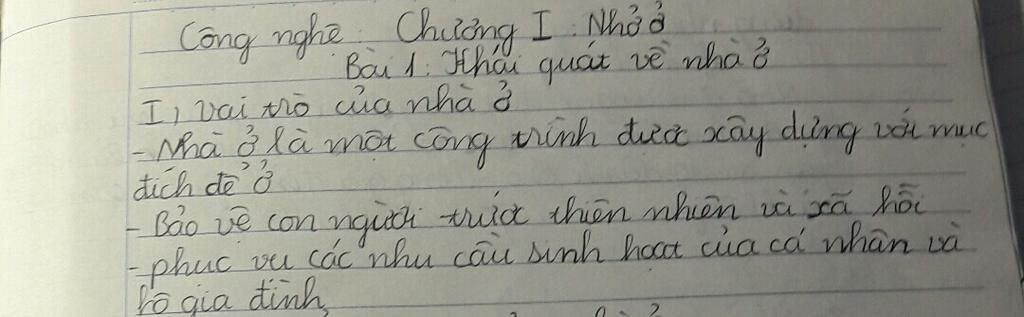 Công nghê: Chương I: Nhở ở
Bài 1: Khái quát về nhà ở
I, vai trò của nhà ở
- Nhà ở là một công trình được xây dựng với mục
đích để ở
- Bảo vê con người trước thiên nhiên và xã hôi
- phuc vu các nhu cầu sinh hoat của cá nhân và
hô gia đình,